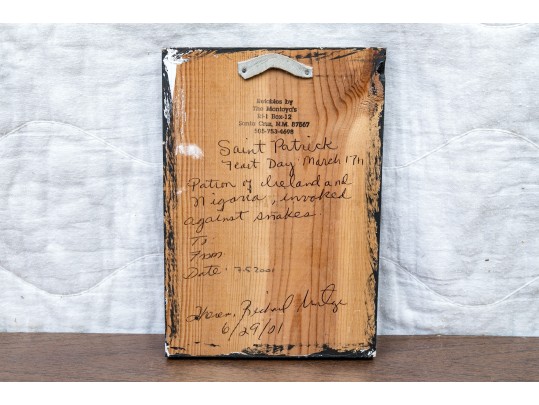 Retablos by
The Montoya's
Rt 1 Box-12
Santa Cruz, N.M. 87567
505-753-6698
Saint Patrick
Feast Day March 17th
Patron of Ireland and
Nigeria, invoked
against snakes.
To
From
Date: 7-5-2001
Richard
6/29/01